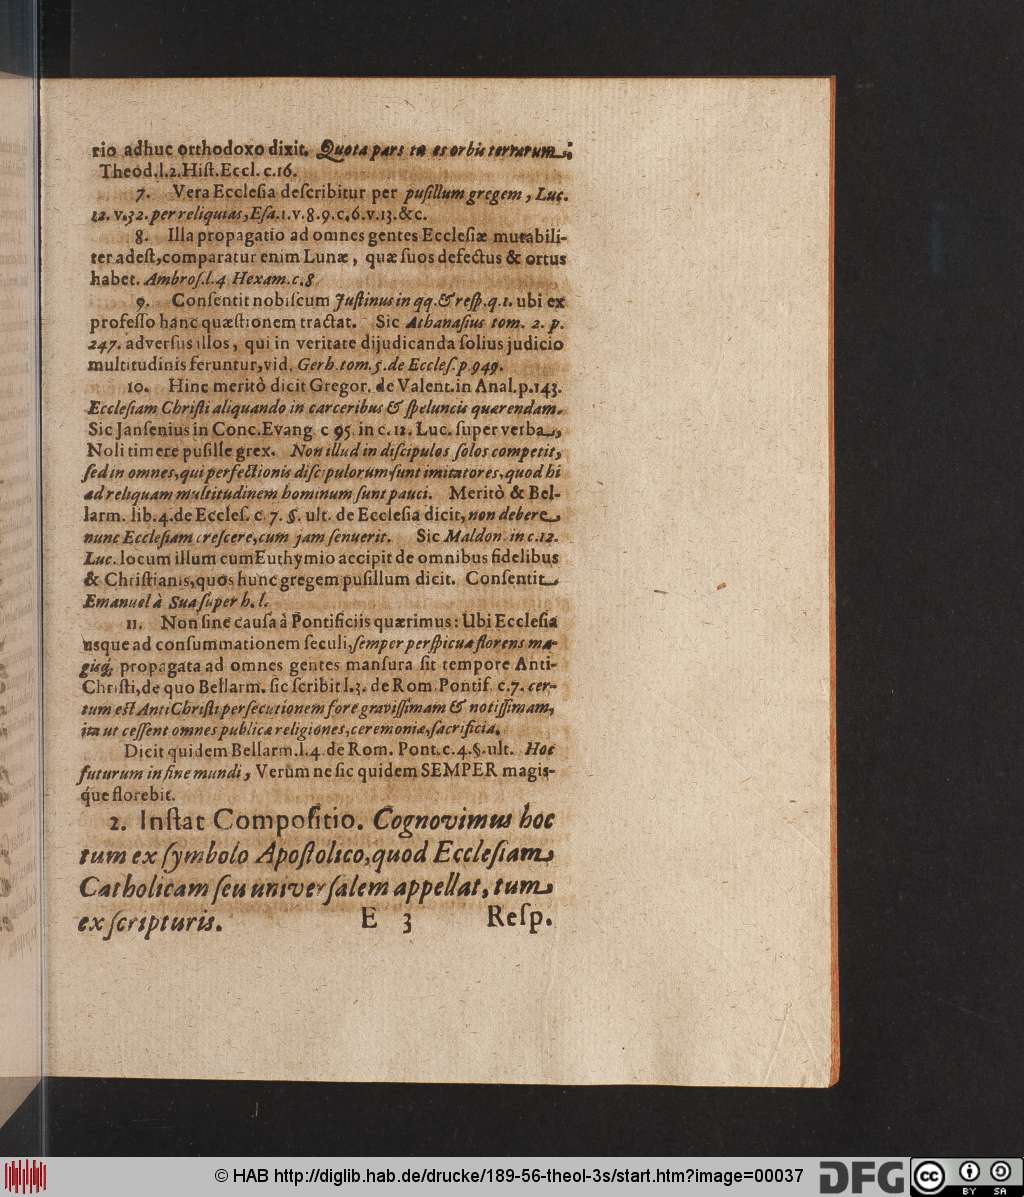 rio adhuc orthodoxo dixit. Quota pars tu es orbis terrarum?
Theod.l.2.Hiſt.Eccl. c.16.
7. Vera Eccleſia deſcribitur per puſillum gregem, Luc.
12. v.32. per reliquias, Eſa.1.v.8.9.c.6.v.13.&c.
8. Illa propagatio ad omnes gentes Eccleſiæ mutabili-
ter adeſt,comparatur enim Lunæ, quæ ſuos defectus & ortus
habet. Ambroſ.l.4 Hexam.c.8.
9. Conſentit nobiſcum Juſtinus in qq.& reſp.q.1. ubi ex
profeſſo hanc quæſtionem tractat. Sic Athanaſius tom. 2. p.
247. adverſus illos, qui in veritate dijudicanda ſolius judicio
multitudinis feruntur,vid. Gerh.tom.5.de Eccleſ.p.949.
10. Hinc meritò dicit Gregor. de Valent.in Anal.p.143.
Eccleſiam Chriſti aliquando in carceribus & ſpeluncis quærendam.
Sic Janſenius in Conc.Evang. c 95. in c.12. Luc. ſuper verba,
Noli timere puſille grex. Non illud in diſcipulos ſolos competit,
ſed in omnes,qui perfectionis diſcipulorum ſunt imitatores,quod hi
ad reliquam multitudinem hominum ſunt pauci. Meritò & Bel-
larm. lib.4.de Eccleſ. c. 7. §. ult. de Eccleſia dicit, non debere
nunc Eccleſiam creſcere,cum jam ſenuerit. Sic Maldon. in c.12.
Luc. locum illum cum Euthymio accipit de omnibus fidelibus
& Chriſtianis,quos hunc gregem puſillum dicit. Conſentit
Emanuel à Sua ſuper h. l.
11. Non ſine cauſa à Pontificiis quærimus: Ubi Eccleſia
usque ad conſummationem ſeculi,ſemper perſpicua florens ma-
gisq́; propagata ad omnes gentes manſura ſit tempore Anti-
Chriſti,de quo Bellarm. ſic ſcribit l.3. de Rom. Pontif. c.7. cer-
tum eſt AntiChriſti perſecutionem fore graviſſimam & notiſſimam,
ita ut ceſſent omnes publicæ religiones,ceremoniæ,ſacrificia.
Dicit quidem Bellarm.l.4.de Rom. Pont.c.4.§.ult. Hoc
futurum in fine mundi, Verùm ne ſic quidem SEMPER magis-
q́ue florebit.
2. Inſtat Compoſitio. Cognovimus hoc
tum ex ſymbolo Apoſtolico,quod Eccleſiam
Catholicam ſeu univerſalem appellat, tum
ex ſcripturis. E 3 Reſp.
© HAB http://diglib.hab.de/drucke/189-56-theol-3s/start.htm?image=00037 DFG cc BY SA